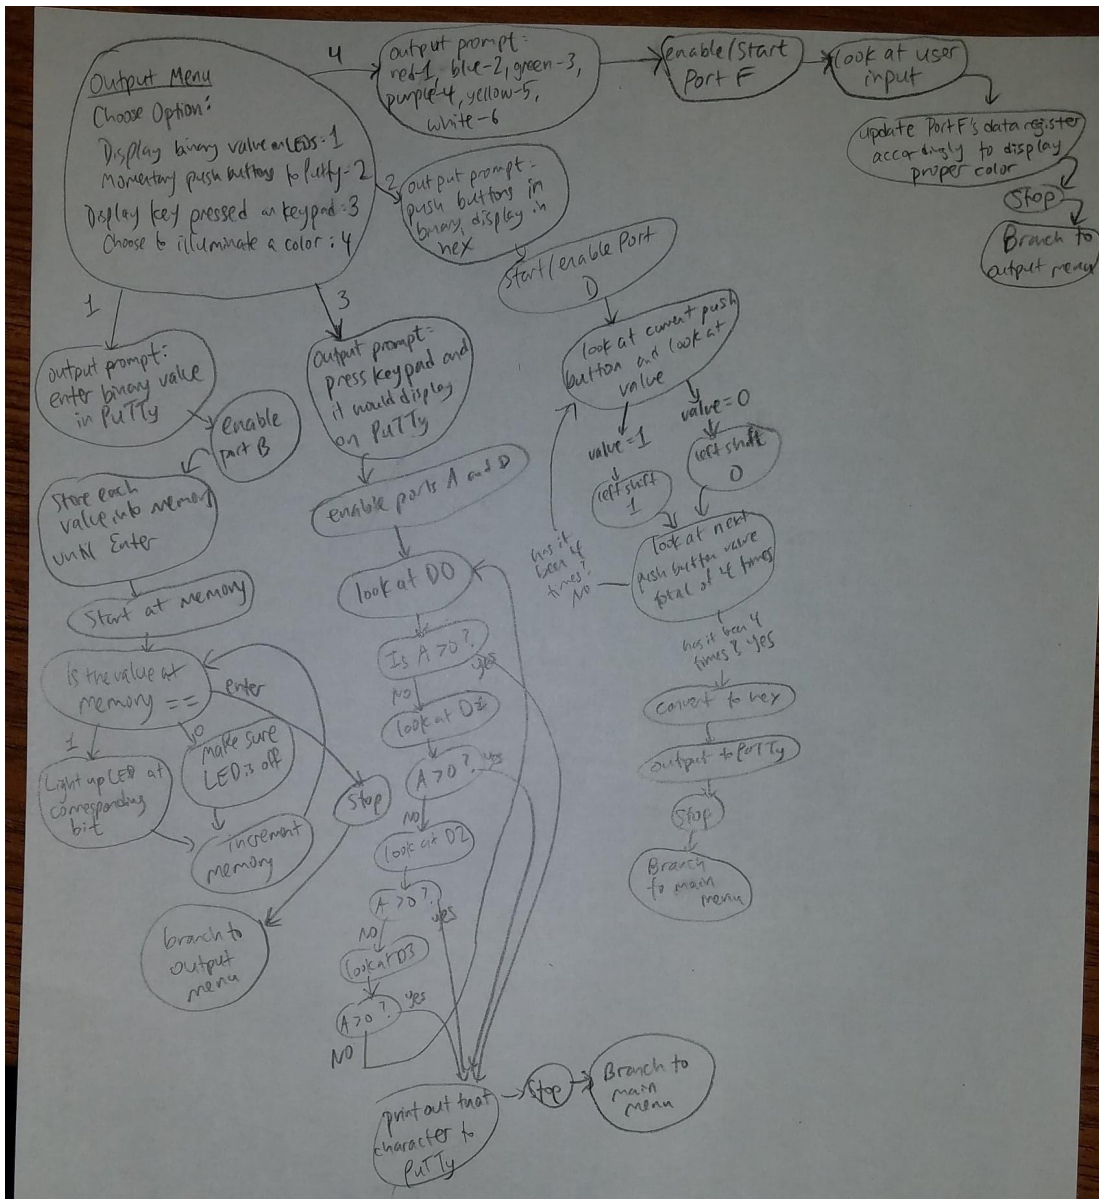 Output Menu
Choose Option:
Display binary value on LEDs: 1
Momentary push buttons to Putty-2
Display key pressed on keypad: 3
Choose to illuminate a color: 4
4
output prompt:
red-1, blue-2, green-3,
purple-4, yellow-5,
white-6
enable/Start
Port F
look at user
input
update Port F's data register
accordingly to display
proper color
Stop
Branch to
output menu
2
output prompt:
push buttons in
binary, display in
hex
Start/enable Port
D
look at current push
button and look at
value
value=1
value=0
left shift
1
left shift
0
look at next
push button value
total of 4 times
has it
been 4
times?
NO
has it been 4
times? yes
convert to hex
output to PuTTy
Stop
Branch
to main
menu
1
output prompt:
enter binary value
in PuTTy
enable
port B
Store each
value into memory
until Enter
Start at memory
Is the value at
memory ==
enter
1
0
Light up LED at
corresponding
bit
make sure
LED is off
increment
memory
Stop
branch to
output
menu
3
output prompt:
press keypad and
it would display
on PuTTy
enable ports A and D
look at D0
Is A>0?
yes
NO
look at D1
A>0?
yes
NO
look at D2
A>0?
yes
NO
look at D3
A>0?
yes
NO
print out that
character to
PuTTy
Stop
Branch to
main
menu